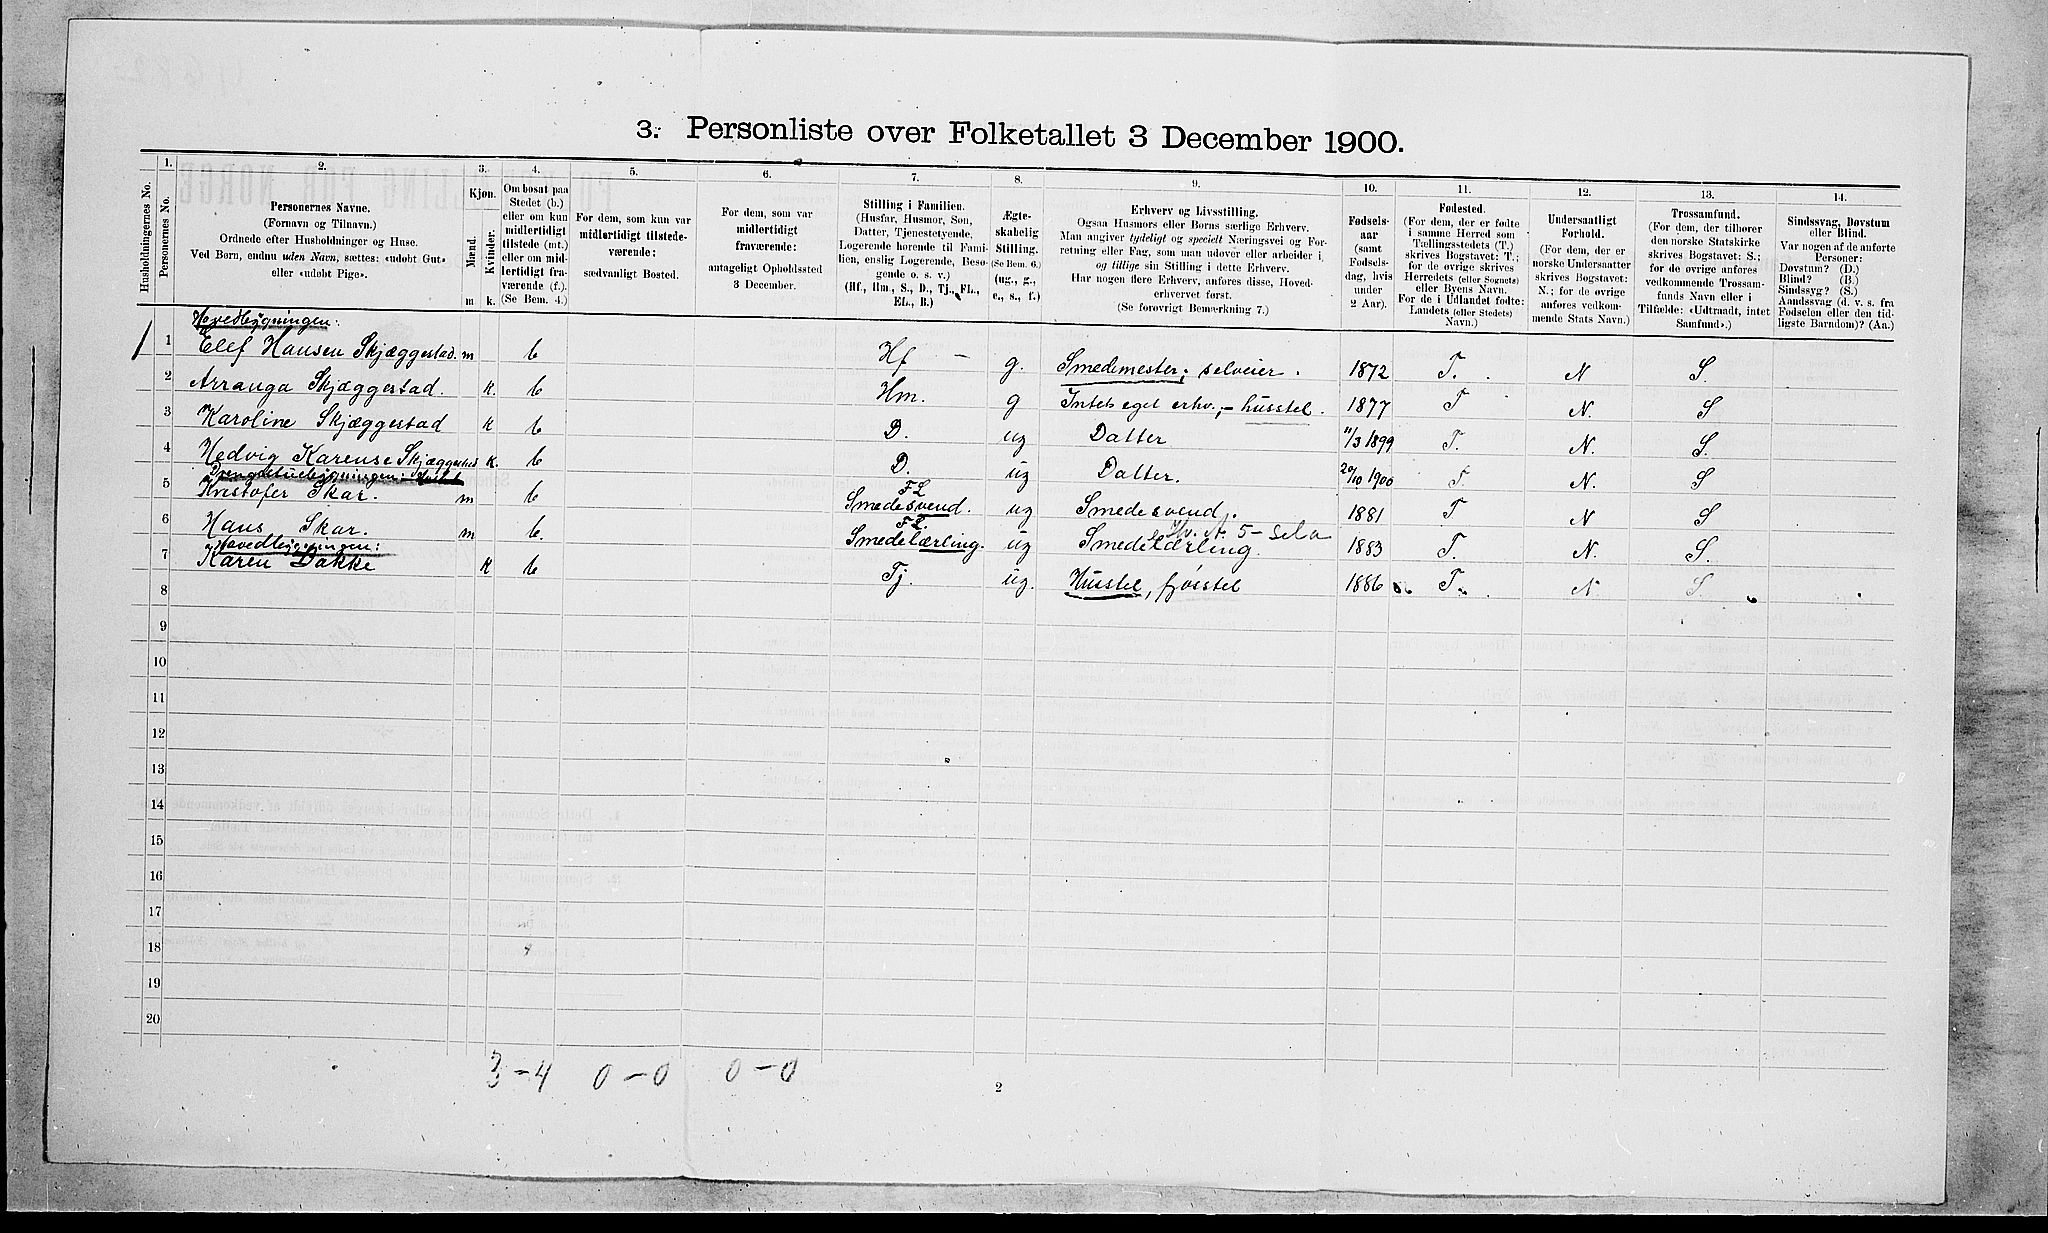 3. Personliste over Folketallet 3 December 1900.
Husholdningernes No.
1.
Personernes No.
2.
Personernes Navne.
(Fornavn og Tilnavn.)
Ordnede efter Husholdninger og Huse.
Ved Børn, endnu uden Navn, sættes: «udøbt Gut»
eller «udøbt Pige».
3.
Kjøn.
Mænd.
Kvinder.
m
k.
4.
Om bosat paa
Stedet (b.)
eller om kun
midlertidigt
tilstede (mt.)
eller om mid-
lertidigt fra-
værende (f.).
(Se Bem. 4.)
5.
For dem, som kun var
midlertidigt tilstede-
værende:
sædvanligt Bosted.
6.
For dem, som var
midlertidigt
fraværende:
antageligt Opholdssted
3 December.
7.
Stilling i Familien.
(Husfar, Husmor, Søn,
Datter, Tjenestetyende,
Logerende hørende til Fami-
lien, enslig Logerende, Besø-
gende o. s. v.)
(Hf., Hm., S., D., Tj., FL.,
EL., B.)
8.
Ægte-
skabelig
Stilling.
(Se Bem. 6.)
(ug., g.,
e., s., f.)
9.
Erhverv og Livsstilling.
Ogsaa Husmors eller Børns særlige Erhverv.
Man angiver tydeligt og specielt Næringsvei og For-
retning eller Fag, som man udøver eller arbeider i,
og tillige sin Stilling i dette Erhverv.
Har nogen flere Erhverv, anføres disse, Hoved-
erhvervet først.
(Se forøvrigt Bemærkning 7.)
10.
Fødsels-
aar
(samt
Fødsels-
dag, hvis
under
2 Aar).
11.
Fødested.
(For dem, der er fødte
i samme Herred som
Tællingsstedets (T.)
skrives Bogstavet: T.;
for de øvrige skrives
Herredets (eller Sognets)
eller Byens Navn.
For de i Udlandet fødte:
Landets (eller Stedets)
Navn.)
12.
Undersaatligt
Forhold.
(For dem, der er
norske Undersaatter
skrives Bogstavet:
N.; for de øvrige
anføres vedkom-
mende Stats Navn.)
13.
Trossamfund.
(For dem, der tilhører
den norske Statskirke
skrives Bogstavet: S.;
for de øvrige anføres
vedkommende Trossam-
funds Navn eller i
Tilfælde: «Udtraadt, intet
Samfund».)
14.
Sindssvag, Døvstum
eller Blind.
Var nogen af de anførte
Personer:
Døvstum? (D.)
Blind? (B.)
Sindssyg? (S.)
Aandssvag (d. v. s. fra
Fødselen eller den tid-
ligste Barndom)? (Aa.)
Hovedbygningen:
1 Elef Hansen Skjæggestad. m b Hf – g. Smedemester; selveier. 1872 T. N S.
2 Arranga Skjæggestad. k. b Hm. g Intet eget erhv.;– husstel. 1877 T N. S
3 Karoline Skjæggestad k b D. ug Datter 11/3 1899 T. N. S.
4 Hedvig Karense Skjæggestad k. b D. ug Datter. 20/10 1900 T N. S
Drengestuebygningen:
5 Kristofer Skar. m b FL Smedesvend. ug Smedesvend. 1881 T N S
6 Hans Skar. m b. FL. Smedelærling. ug Smedelærling. 1883 T. N. S.
Hovedbygningen:
7 Karen Dakke k b Tj. ug. Husstel, fjøsstel 1886 T. N. S.
8
9
10
11
12
13
14
15
16
17
18
19
20
3 – 4 0 – 0 0 – 0
2